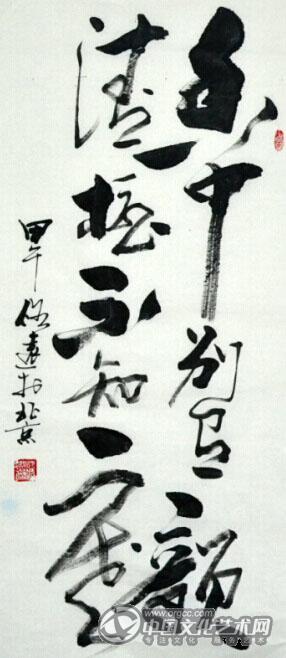 香中别有韻
清極不知寒
甲午遠於北京
中国文化艺术网
www.orgcc.com